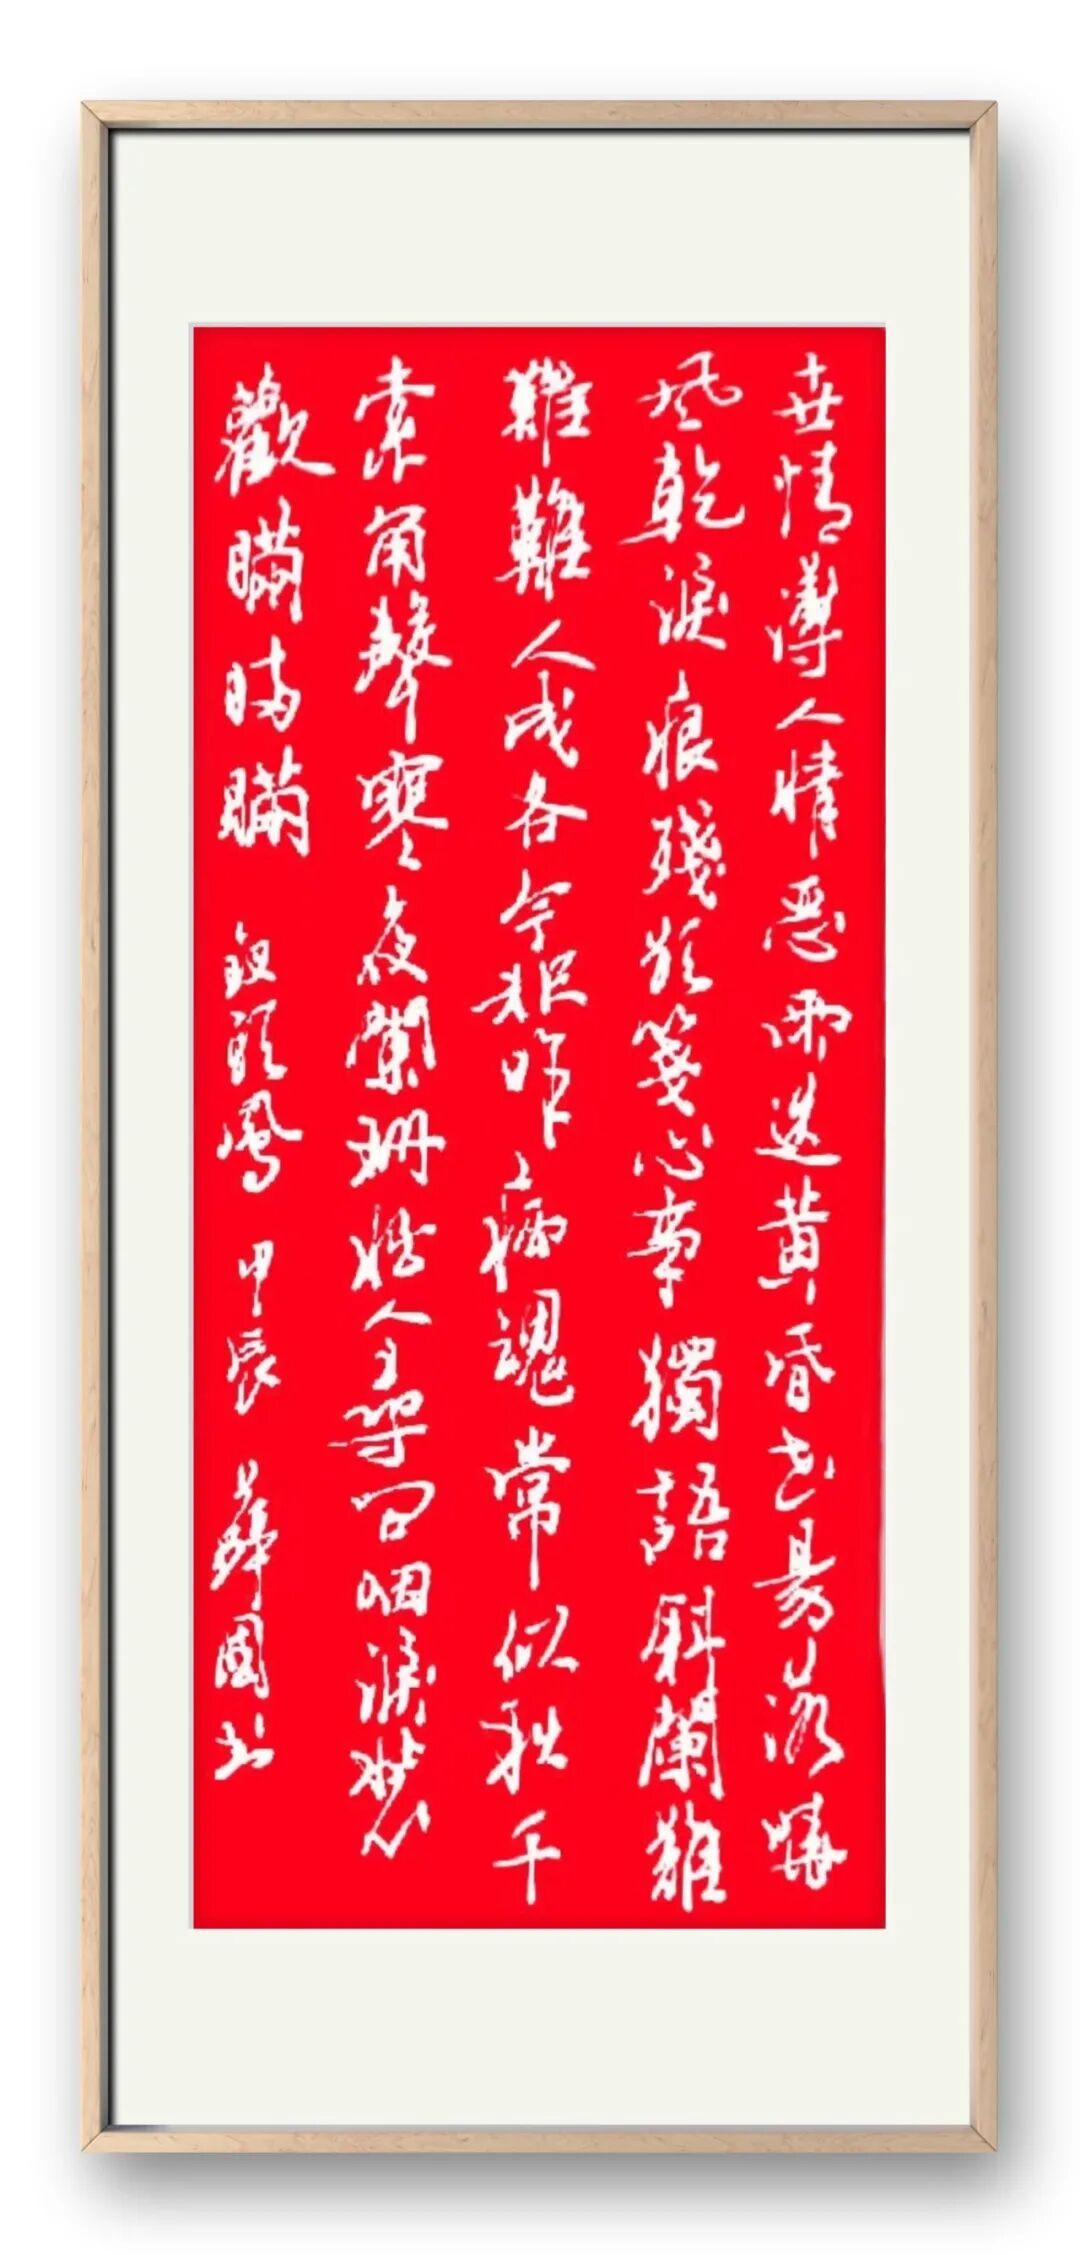 世情薄人情恶雨送黄昏花易落曉
風乾淚痕殘欲箋心事獨語斜闌難
難難人成各今非昨病魂常似秋千
索角聲寒夜闌珊怕人尋問咽淚裝
歡瞞瞞瞞 釵頭鳳 甲辰 薛國书